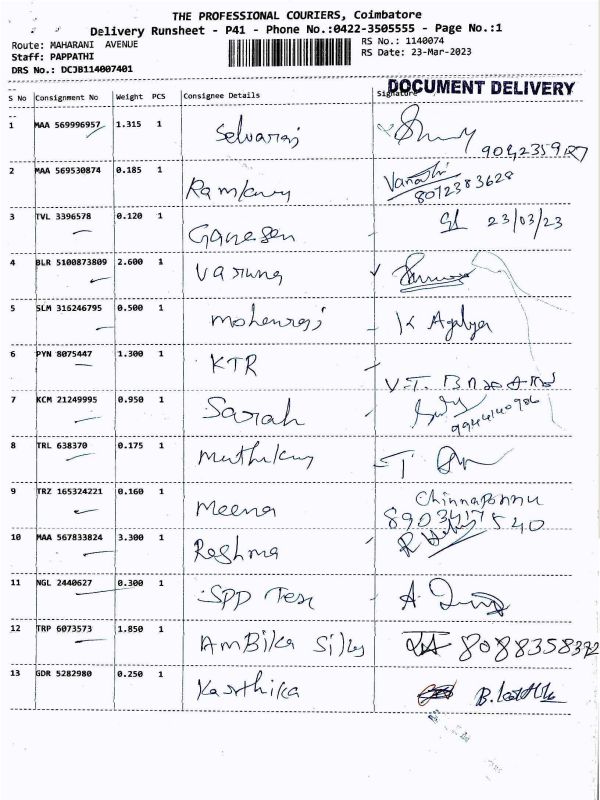 THE PROFESSIONAL COURIERS, Coimbatore
Delivery Runsheet - P41 - Phone No.:0422-3505555 - Page No.:1
Route: MAHARANI AVENUE
RS No.: 1140074
Staff: PAPPATHI
RS Date: 23-Mar-2023
DRS No.: DCJB114007401
DOCUMENT DELIVERY
S No Consignment No Weight PCS Consignee Details Signature
1 MAA 569996957 1.315 1 Selvaraj
2 MAA 569530874 0.185 1 8072383628
3 TVL 3396578 0.120 1 Ganesen 23/03/23
4 BLR 5100873809 2.600 1 Varuna
5 SLM 316246795 0.500 1 K Agalya
6 PYN 8075447 1.300 1 KTR
7 KCM 21249995 0.950 1 Sarah
8 TRL 638370 0.175 1 T
9 TRZ 165324221 0.160 1 Meena Chinnaponnu
10 MAA 567833824 3.300 1 Reshma
11 NGL 2440627 0.300 1 SPP Tex A
12 TRP 6073573 1.850 1 AmBika Silks 8088358392
13 GDR 5282980 0.250 1 Karthika